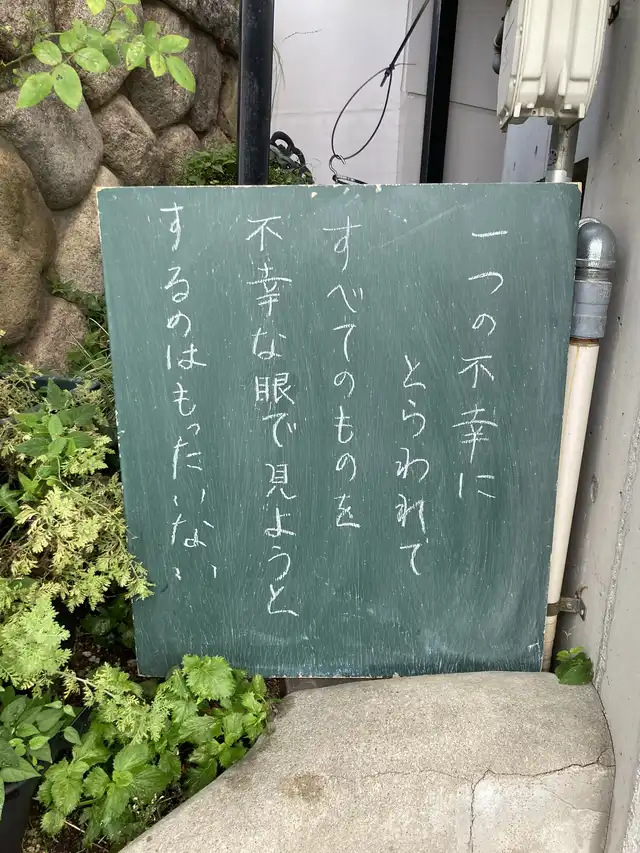 一つの不幸に
とらわれて
すべてのものを
不幸な眼で見ようと
するのはもったいない